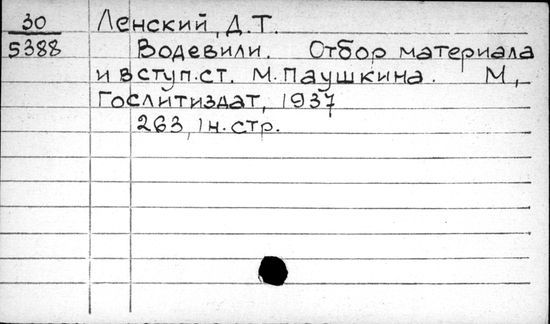 30 Ленский, Д.Т.
5388 Водевили. Отбор материала
и вступ.ст. М.Паушкина. М.,
Гослитиздат, 1937
263, 1н.стр.